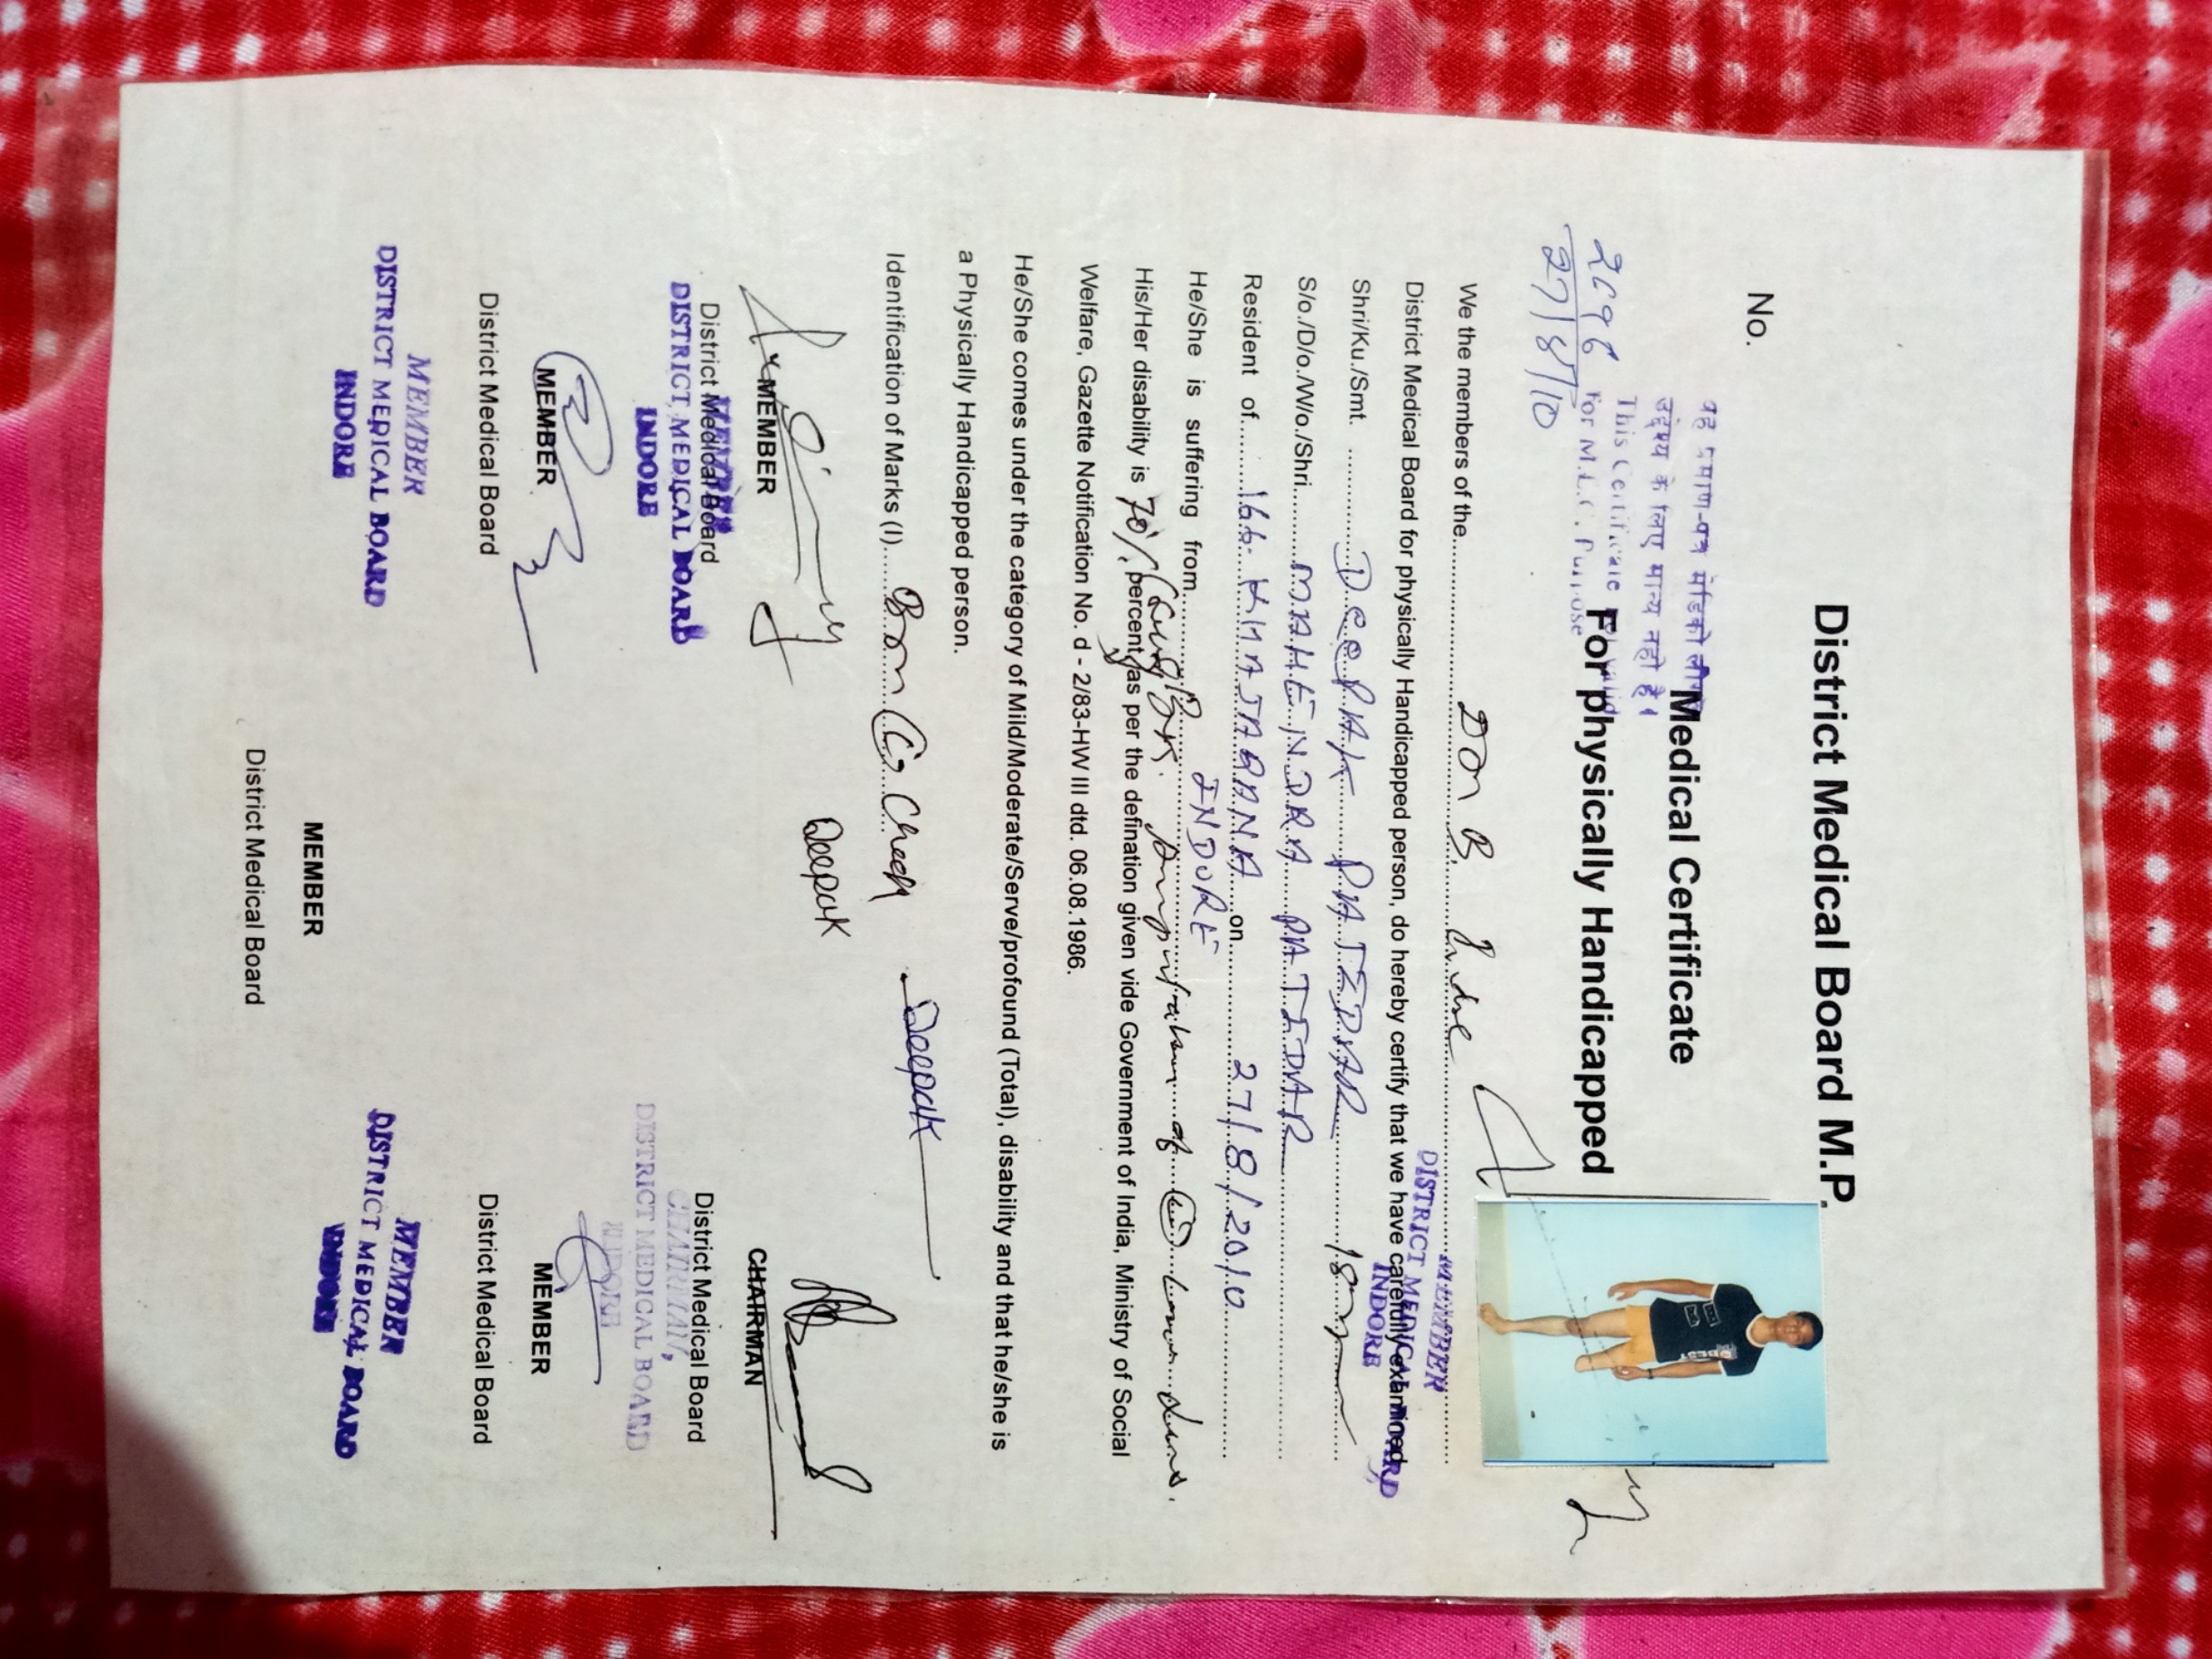 District Medical Board M.P.
यह प्रमाण-पत्र मेडिको लीगल
उद्देश्य के लिए मान्य नहीं है।
This Certificate
For M.L.C. Purpose
Medical Certificate
For physically Handicapped
No.
2696
27/8/10
We the members of the
MEMBER
DISTRICT MEDICAL BOARD,
INDORE
District Medical Board for physically Handicapped person, do hereby certify that we have carefully examined
Shri/Ku./Smt. DeePAK PATIDAR 18
S/o./D/o./W/o./Shri MAHENDRA PATIDAR
Resident of 166. KHAJARANA INDORE on 27/8/2010
He/She is suffering from amputation of Lower Limb.
His/Her disability is 70% percent as per the defination given vide Government of India, Ministry of Social
Welfare, Gazette Notification No. d - 2/83-HW III dtd. 06.08.1986.
He/She comes under the category of Mild/Moderate/Serve/profound (Total), disability and that he/she is
a Physically Handicapped person.
Identification of Marks (I) Cheek
Deepak
Deepak
MEMBER
District Medical Board
MEMBER
DISTRICT MEDICAL BOARD
INDORE
CHAIRMAN
District Medical Board
CHAIRMAN,
DISTRICT MEDICAL BOARD
INDORE
MEMBER
District Medical Board
MEMBER
DISTRICT MEDICAL BOARD
INDORE
MEMBER
District Medical Board
MEMBER
DISTRICT MEDICAL BOARD
INDORE
MEMBER
District Medical Board